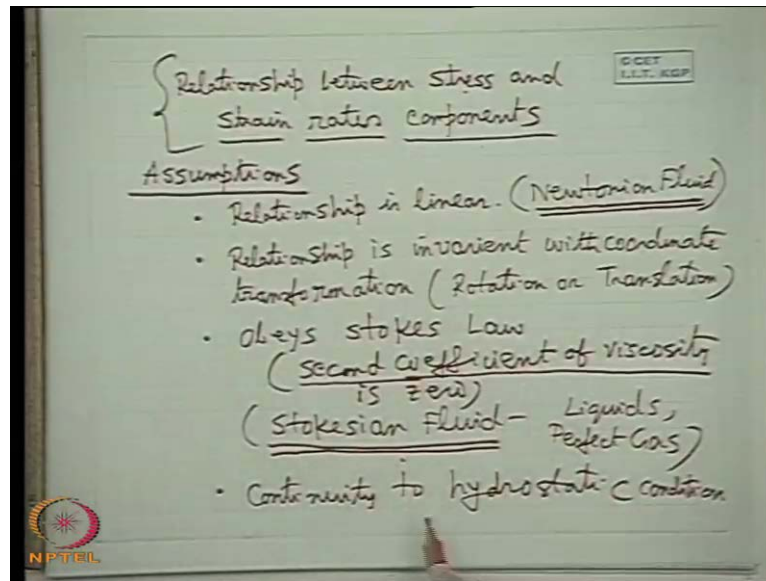 Relationship between stress and
strain rates components
© CET
I.I.T. KGP
Assumptions
• Relationship is linear. (Newtonian Fluid)
• Relationship is invarient with coordinate
transformation (Rotation or Translation)
• Obeys Stokes Law
(Second coefficient of viscosity
is zero)
(Stokesian Fluid - Liquids,
Perfect Gas)
• Continuity to hydrostatic condition
NPTEL